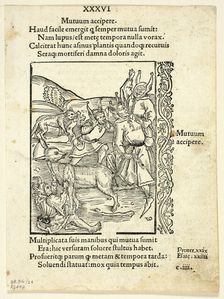 XXXVI
Mutuum accipere.
Haud facile emergit q semper mutua sumit:
Nam lupus/est metę tempora nulla vorax.
Calcitrat hunc asinus plantis quandoq; recuruis
Seraq; mortiferi damna doloris agit.
Mutuum
accipere.
Multiplicata suis manibus qui mutua sumit
Era: hic versuram soluere stultus habet.
Profueritq; parum q metam & tempora tarda:
Soluendi statuat: mox quia tempus abit.